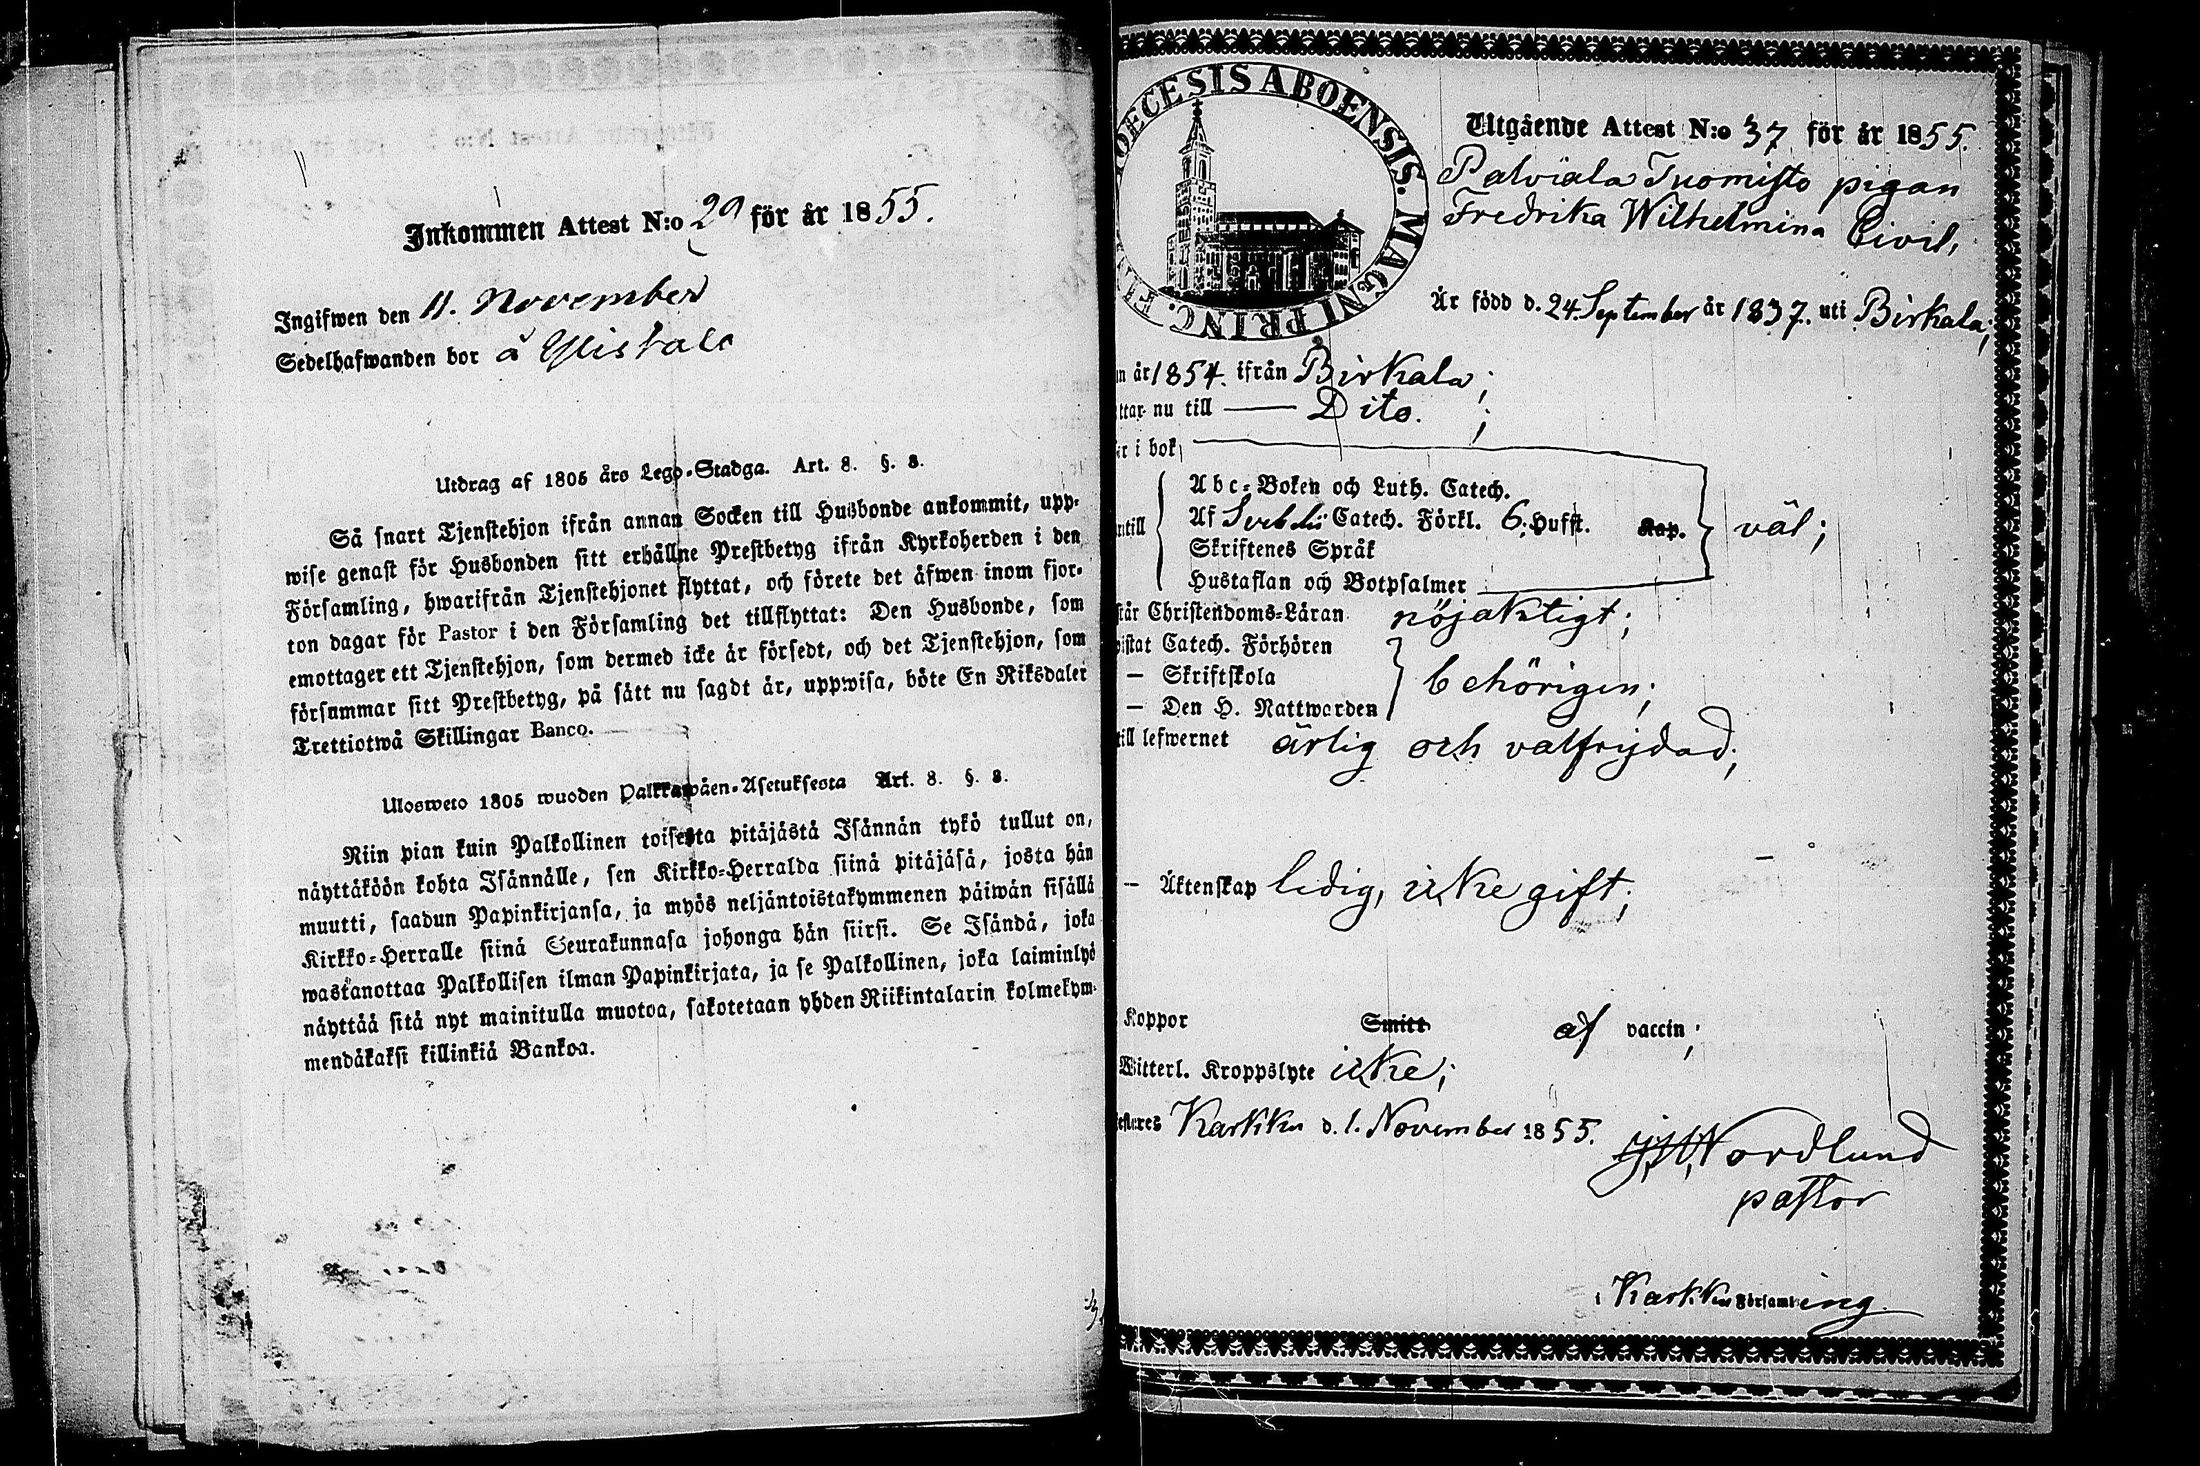 Inkommen Attest N:o 29 för år 1855.
Ingifwen den 11. November
Sedelhafwanden bor å
Utdrag af 1805 års Lego-Stadga. Art. 8. §. 8.
Så snart Tjenstehjon ifrån annan Socken till Husbonde ankommit, upp-
wise genast för Husbonden sitt erhållne Prestbetyg ifrån Kyrkoherden i den
Församling, hwarifrån Tjenstehjonet flyttat, och förete det äfwen inom fjor-
ton dagar för Pastor i den Församling det tillflyttat: Den Husbonde, som
emottager ett Tjenstehjon, som dermed icke är försedt, och det Tjenstehjon, som
försummar sitt Prestbetyg, på sätt nu sagdt är, uppwisa, böte En Riksdaler
Trettiotwå Skillingar Banco.
Ulosweto 1805 wuoden Palkkawäen-Asetuksesta Art. 8. §. 8.
Niin pian kuin Palkollinen toisesta pitäjästä Isännän tykö tullut on,
näyttäköön kohta Isännälle, sen Kirkko-Herralda siinä pitäjäsä, josta hän
muutti, saadun Papinkirjansa, ja myös neljäntoistakymmenen päiwän sisällä
Kirkko-Herralle siinä Seurakunnasa johonga hän siirsi. Se Isändä, joka
wastanottaa Palkollisen ilman Papinkirjata, ja se Palkollinen, joka laiminlyö
näyttää sitä nyt mainitulla muotoa, sakotetaan yhden Riikintalarin kolmekym-
mendäkaksi killinkiä Bankoa.
DIOECESIS ABOENSIS. MAGNI PRINC.
Utgående Attest N:o 37 för år 1855.
Palviala Tuomisto pigan
Fredrika Wilhelmina Civil,
Är född d. 24. September år 1837. uti Birkala,
år 1854. ifrån Birkala;
ttar nu till — Dito. ;
r i bok
Abc-Boken och Luth. Catech.
Af Svebelii Catech. Förkl. 6. Hufst. Kap. väl;
Skriftenes Språk
Hustaflan och Botpsalmer
står Christendoms-Läran nöjaktigt;
istat Catech. Förhören
— Skriftskola behörigen;
— Den H. Nattwarden
till lefwernet ärlig och välfrejdad;
— Äktenskap ledig, icke gift;
Koppor Smitt af vaccin;
Witterl. Kroppslyte icke;
Karkku d. 1. November 1855.
Nordlund
pastor
i Karkku Församling.